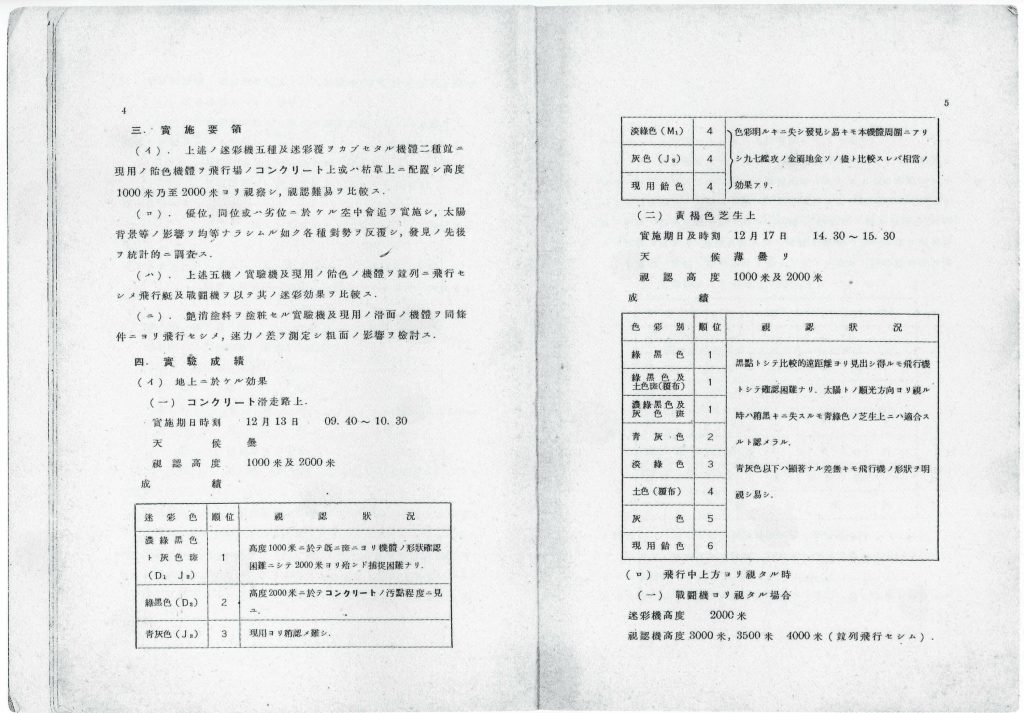 4
三. 實施要領
(イ). 上述ノ迷彩機五種及迷彩覆ヲカブセタル機體二種竝ニ
現用ノ飴色機體ヲ飛行場ノコンクリート上或ハ枯草上ニ配置シ高度
1000米乃至2000米ヨリ視察シ, 視認難易ヲ比較ス.
(ロ). 優位, 同位或ハ劣位ニ於ケル空中會逅ヲ實施シ, 太陽
背景等ノ影響ヲ均等ナラシムル如ク各種對勢ヲ反覆シ, 發見ノ先後
ヲ統計的ニ調査ス.
(ハ). 上述五機ノ實驗機及現用ノ飴色ノ機體ヲ竝列ニ飛行セ
シメ飛行艇及戰鬪機ヲ以テ其ノ迷彩効果ヲ比較ス.
(ニ). 艶消塗料ヲ塗粧セル實驗機及現用ノ滑面ノ機體ヲ同條
件ニヨリ飛行セシメ, 速力ノ差ヲ測定シ粗面ノ影響ヲ檢討ス.
四. 實驗成績
(イ) 地上ニ於ケル効果
(一) コンクリート滑走路上.
實施期日時刻 12月13日 09.40～10.30
天候 曇
視認高度 1000米及2000米
成績
迷彩色 順位 視認狀況
濃綠黑色ト灰色斑(D₁ J₂) 1 高度1000米ニ於テ既ニ斑ニヨリ機體ノ形狀確認
困難ニシテ2000米ヨリ殆ンド捕捉困難ナリ.
綠黑色(D₂) 2 高度2000米ニ於テコンクリートノ汚點程度ニ見
ユ.
青灰色(J₃) 3 現用ヨリ稍認メ難シ.
5
淡綠色(M₁) 4 色彩明ルキニ失シ發見シ易キモ本機體周圍ニアリ
灰色(J₂) 4 シ九七艦攻ノ金屬地金ソノ儘ト比較スレバ相當ノ
現用飴色 4 効果アリ.
(二) 黃褐色芝生上
實施期日及時刻 12月17日 14.30～15.30
天候 薄曇リ
視認高度 1000米及2000米
成績
色彩別 順位 視認狀況
綠黑色 1
綠黑色及土色斑(覆布) 1
濃綠黑色及灰色斑 1
青灰色 2
淡綠色 3
土色(覆布) 4
灰色 5
現用飴色 6
黑點トシテ比較的遠距離ヨリ見出シ得ルモ飛行機
トシテ確認困難ナリ. 太陽トノ順光方向ヨリ視ル
時ハ稍黑キニ失スルモ青綠色ノ芝生上ニハ適合ス
ルト認メラル.
青灰色以下ハ顯著ナル差無キモ飛行機ノ形狀ヲ明
視シ易シ.
(ロ) 飛行中上方ヨリ視タル時
(一) 戰鬪機ヨリ視タル場合
迷彩機高度 2000米
視認機高度 3000米, 3500米 4000米 (竝列飛行セシム).